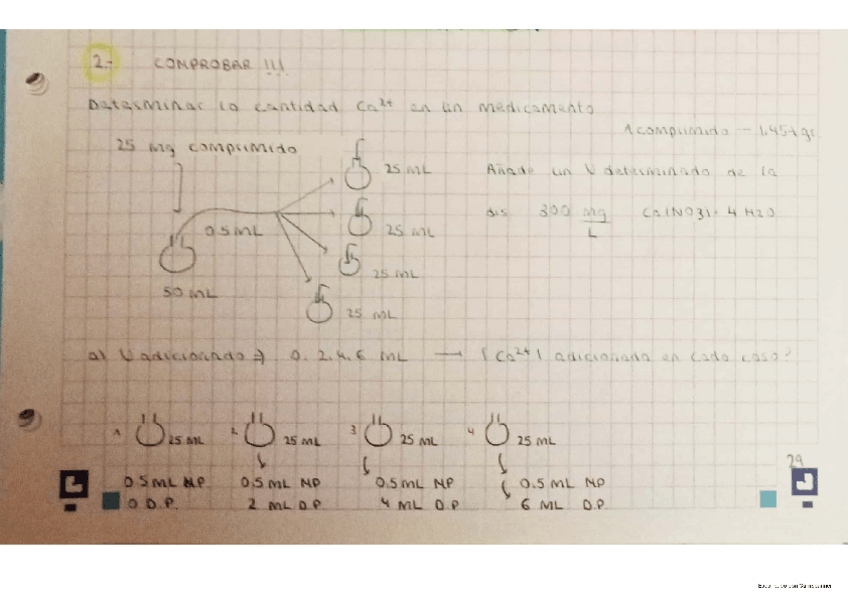 2.- COMPROBAR !!!
Determinar la cantidad Ca²⁺ en un medicamento
1 comprimido – 1.454 gr
25 mg comprimido
25 mL
Añade un V determinado de la
dis 300 mg/L Ca(NO3)· 4 H2O
0.5 mL
25 mL
25 mL
50 mL
25 mL
a) V adicionado ⇒ 0, 2, 4, 6 mL → [Ca²⁺] adicionada en cada caso?
1 25 mL 2 25 mL 3 25 mL 4 25 mL
29
0.5 mL MP 0.5 mL MP 0.5 mL MP 0.5 mL MP
0 D.P. 2 mL D.P 4 mL D.P 6 mL D.P.